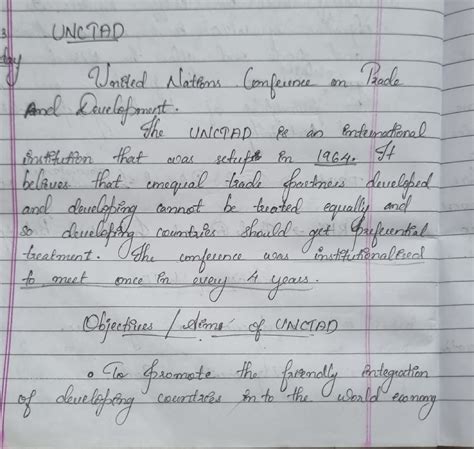 UNCTAD
United Nations Conference on Trade
And Development.
The UNCTAD is an international
institution that was setup in 1964. It
believes that unequal trade partners developed
and developing cannot be treated equally and
so developing countries should get preferential
treatment. The conference was institutionalized
to meet once in every 4 years.
Objectives / Aims of UNCTAD
To promote the friendly integration
of developing countries in to the world economy